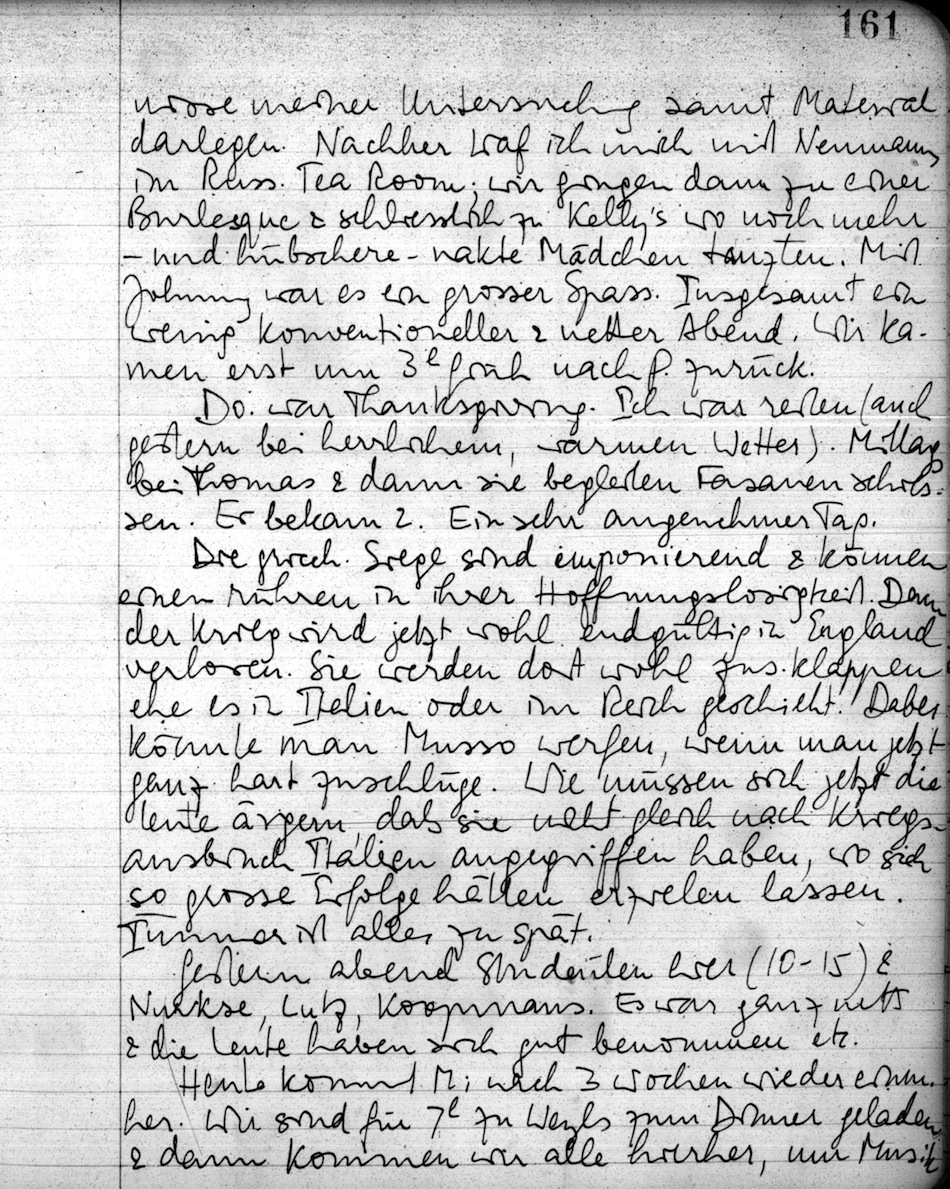 161
meiner Untersuchung samt Material
darlegen. Nachher traf ich mich mit Neumann,
im Russ. Tea Room; wir gingen dann zu einer
Burlesque & schliesslich zu Kelly's wo noch mehr
– und hübschere – nakte Mädchen tanzten. Mit
Johnny war es ein grosser Spass. Insgesamt ein
wenig konventioneller & netter Abend. Wir ka-
men erst um 3ʰ früh nach P. zurück.
Do. war Thanksgiving. Ich war reiten (auch
gestern bei herrlichem, warmen Wetter). Mittag
bei Thomas & dann sie begleiten Fasanen schies-
sen. Er bekam 2. Ein sehr angenehmer Tag.
Die griech. Siege sind imponierend & können
einen rühren in ihrer Hoffnungslosigkeit. Denn
der Krieg wird jetzt wohl endgültig in England
verloren. Sie werden dort wohl zus.klappen
ehe es in Italien oder im Reich geschieht. Dabei
könnte man Musso werfen, wenn man jetzt
ganz hart zuschlüge. Wie müssen sich jetzt die
Leute ärgern, dass sie nicht gleich nach Kriegs-
ausbruch Italien angegriffen haben, wo sich
so grosse Erfolge hätten erzielen lassen.
Immer ist alles zu spät.
Gestern abend Studenten hier (10-15) &
Nurkse, Lutz, Koopmans. Es war ganz nett
& die Leute haben sich gut benommen etc.
Heute kommt M; nach 3 Wochen wieder einm.
her. Wir sind für 7ʰ zu Weyls zum Dinner geladen
& dann kommen wir alle hierher, um Musik